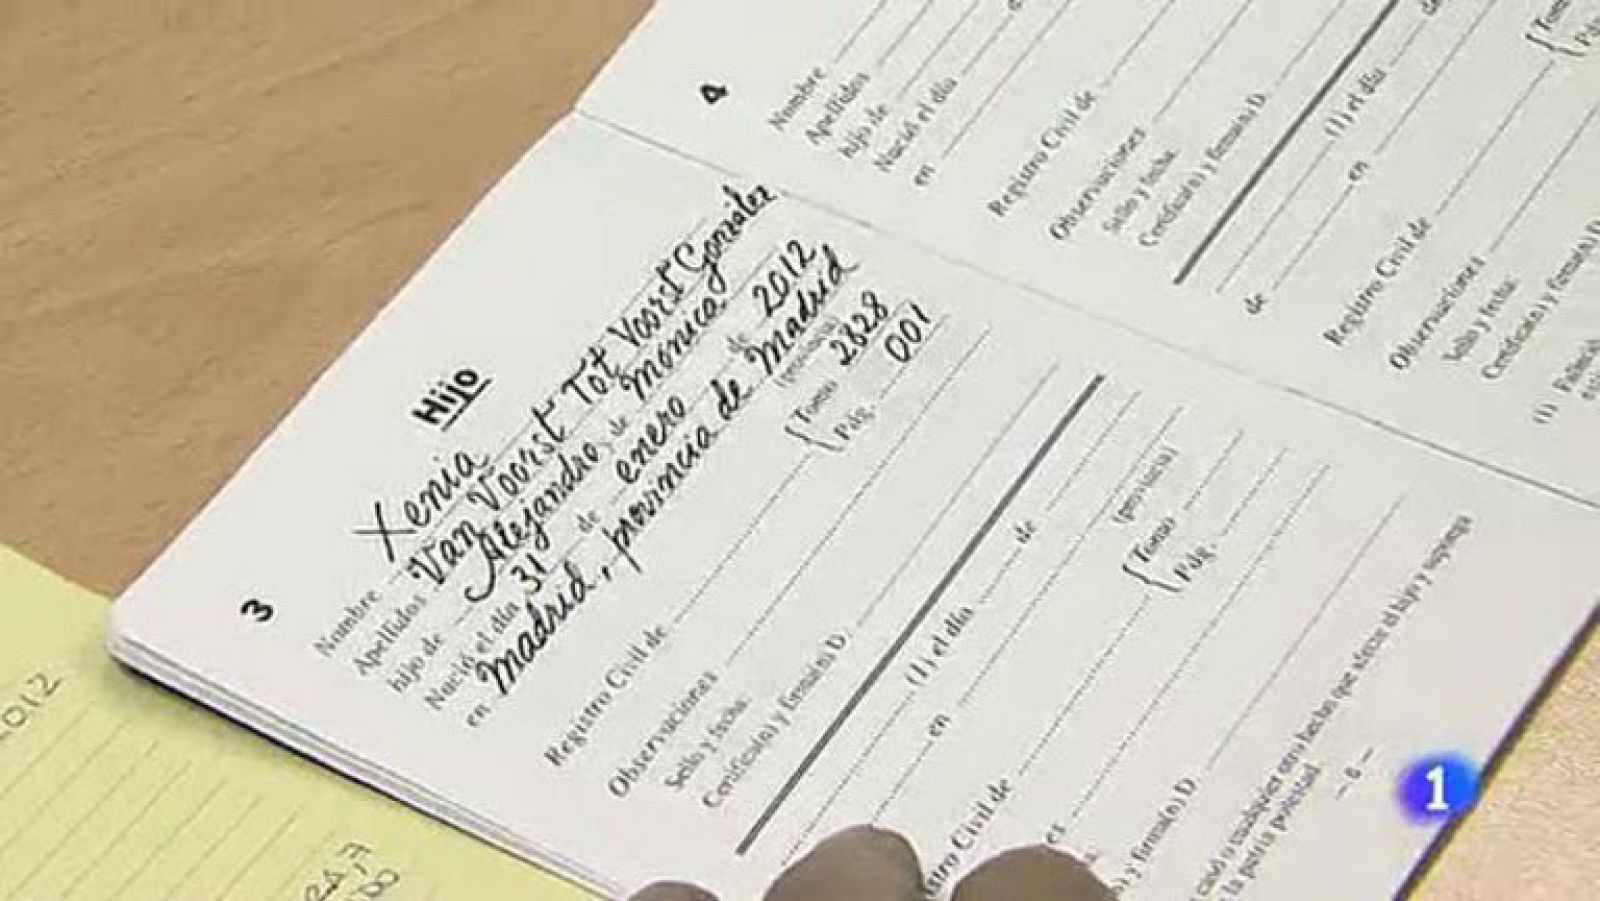 4
Nombre
Apellidos
hijo de
Nació el día
en
Registro Civil de
Observaciones
Sello y fecha.
Certifica(n) y firma(n) D.
(1) el día
de
en
de
Registro Civil de
Observaciones
Sello y fecha.
Certifica(n) y firma(n) D.
{ Tomo
Pág.
3
Hijo
Nombre Xenia
Apellidos Van Voorst Tot Voorst González
hijo de Alejandro, de Mónica
Nació el día 31 de enero de 2012
en Madrid, provincia de Madrid
(provincia)
Registro Civil de { Tomo 2828
Pág. 001
Observaciones
Sello y fecha.
Certifica(n) y firma(n) D.
(1) el día de
en (provincia)
Civil de { Tomo
Pág.
es
y firma(n) D.
o cualquier otro hecho que afecte al hijo y suponga
la patria potestad.
— 6 —
2012
1